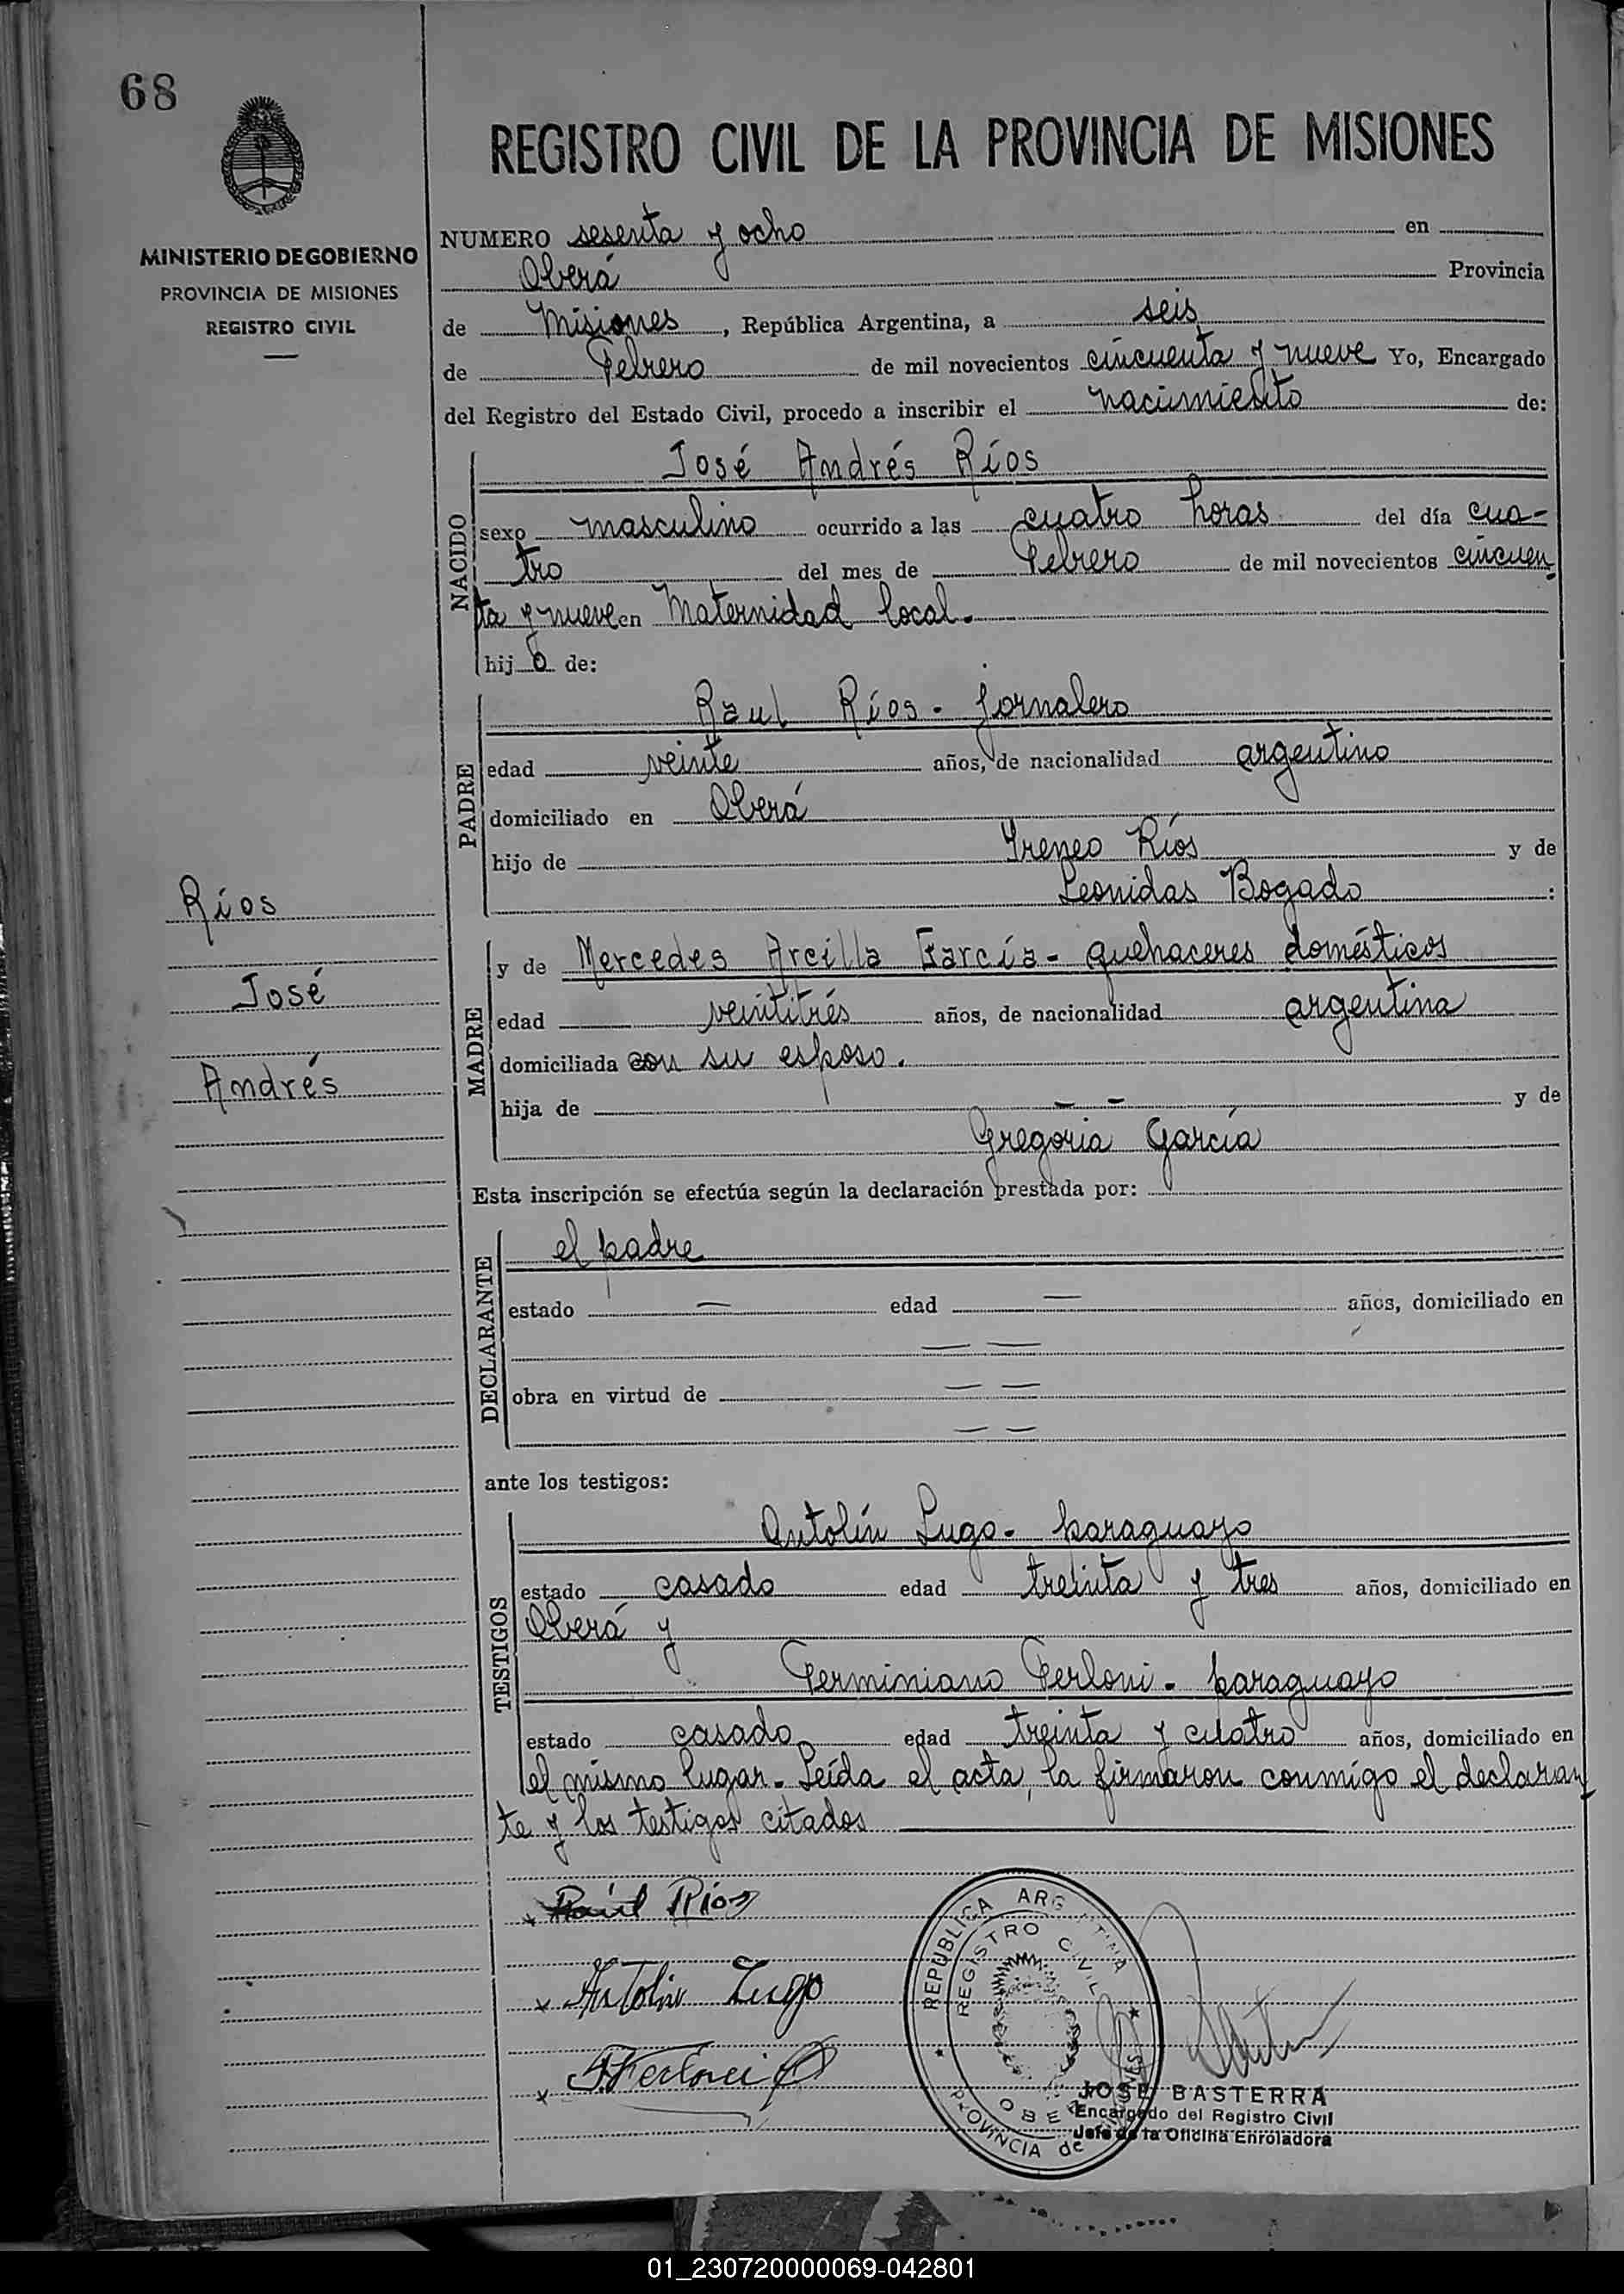 68
REGISTRO CIVIL DE LA PROVINCIA DE MISIONES
MINISTERIO DE GOBIERNO
PROVINCIA DE MISIONES
REGISTRO CIVIL
NUMERO sesenta y ocho en
Oberá Provincia
de Misiones, República Argentina, a seis
de Febrero de mil novecientos cincuenta y nueve Yo, Encargado
del Registro del Estado Civil, procedo a inscribir el nacimiento de:
NACIDO
José Andrés Ríos
sexo masculino ocurrido a las cuatro horas del día cua-
tro del mes de Febrero de mil novecientos cincuen
ta y nueve en Maternidad local.
hij o de:
PADRE
Raul Ríos - jornalero
edad veinte años, de nacionalidad argentino
domiciliado en Oberá
hijo de Ireneo Ríos y de
Leonidas Bogado :
Ríos
José
Andrés
MADRE
y de Mercedes Arcilla García - quehaceres domésticos
edad veintitrés años, de nacionalidad argentina
domiciliada con su esposo.
hija de — — y de
Gregoria García
Esta inscripción se efectúa según la declaración prestada por:
DECLARANTE
el padre
estado — edad — años, domiciliado en
— —
obra en virtud de — —
— —
ante los testigos:
TESTIGOS
Antolín Lugo - paraguayo
estado casado edad treinta y tres años, domiciliado en
Oberá y
Ferminiano Ferloni - paraguayo
estado casado edad treinta y cuatro años, domiciliado en
el mismo lugar. Leída el acta, la firmaron conmigo el declaran
te y los testigos citados
x Raúl Ríos
x Antolin Lugo
x
REPUBLICA ARGENTINA
REGISTRO CIVIL
OBERA
PROVINCIA de MISIONES
JOSE BASTERRA
Encargado del Registro Civil
Jefe de la Oficina Enroladora
01_230720000069-042801